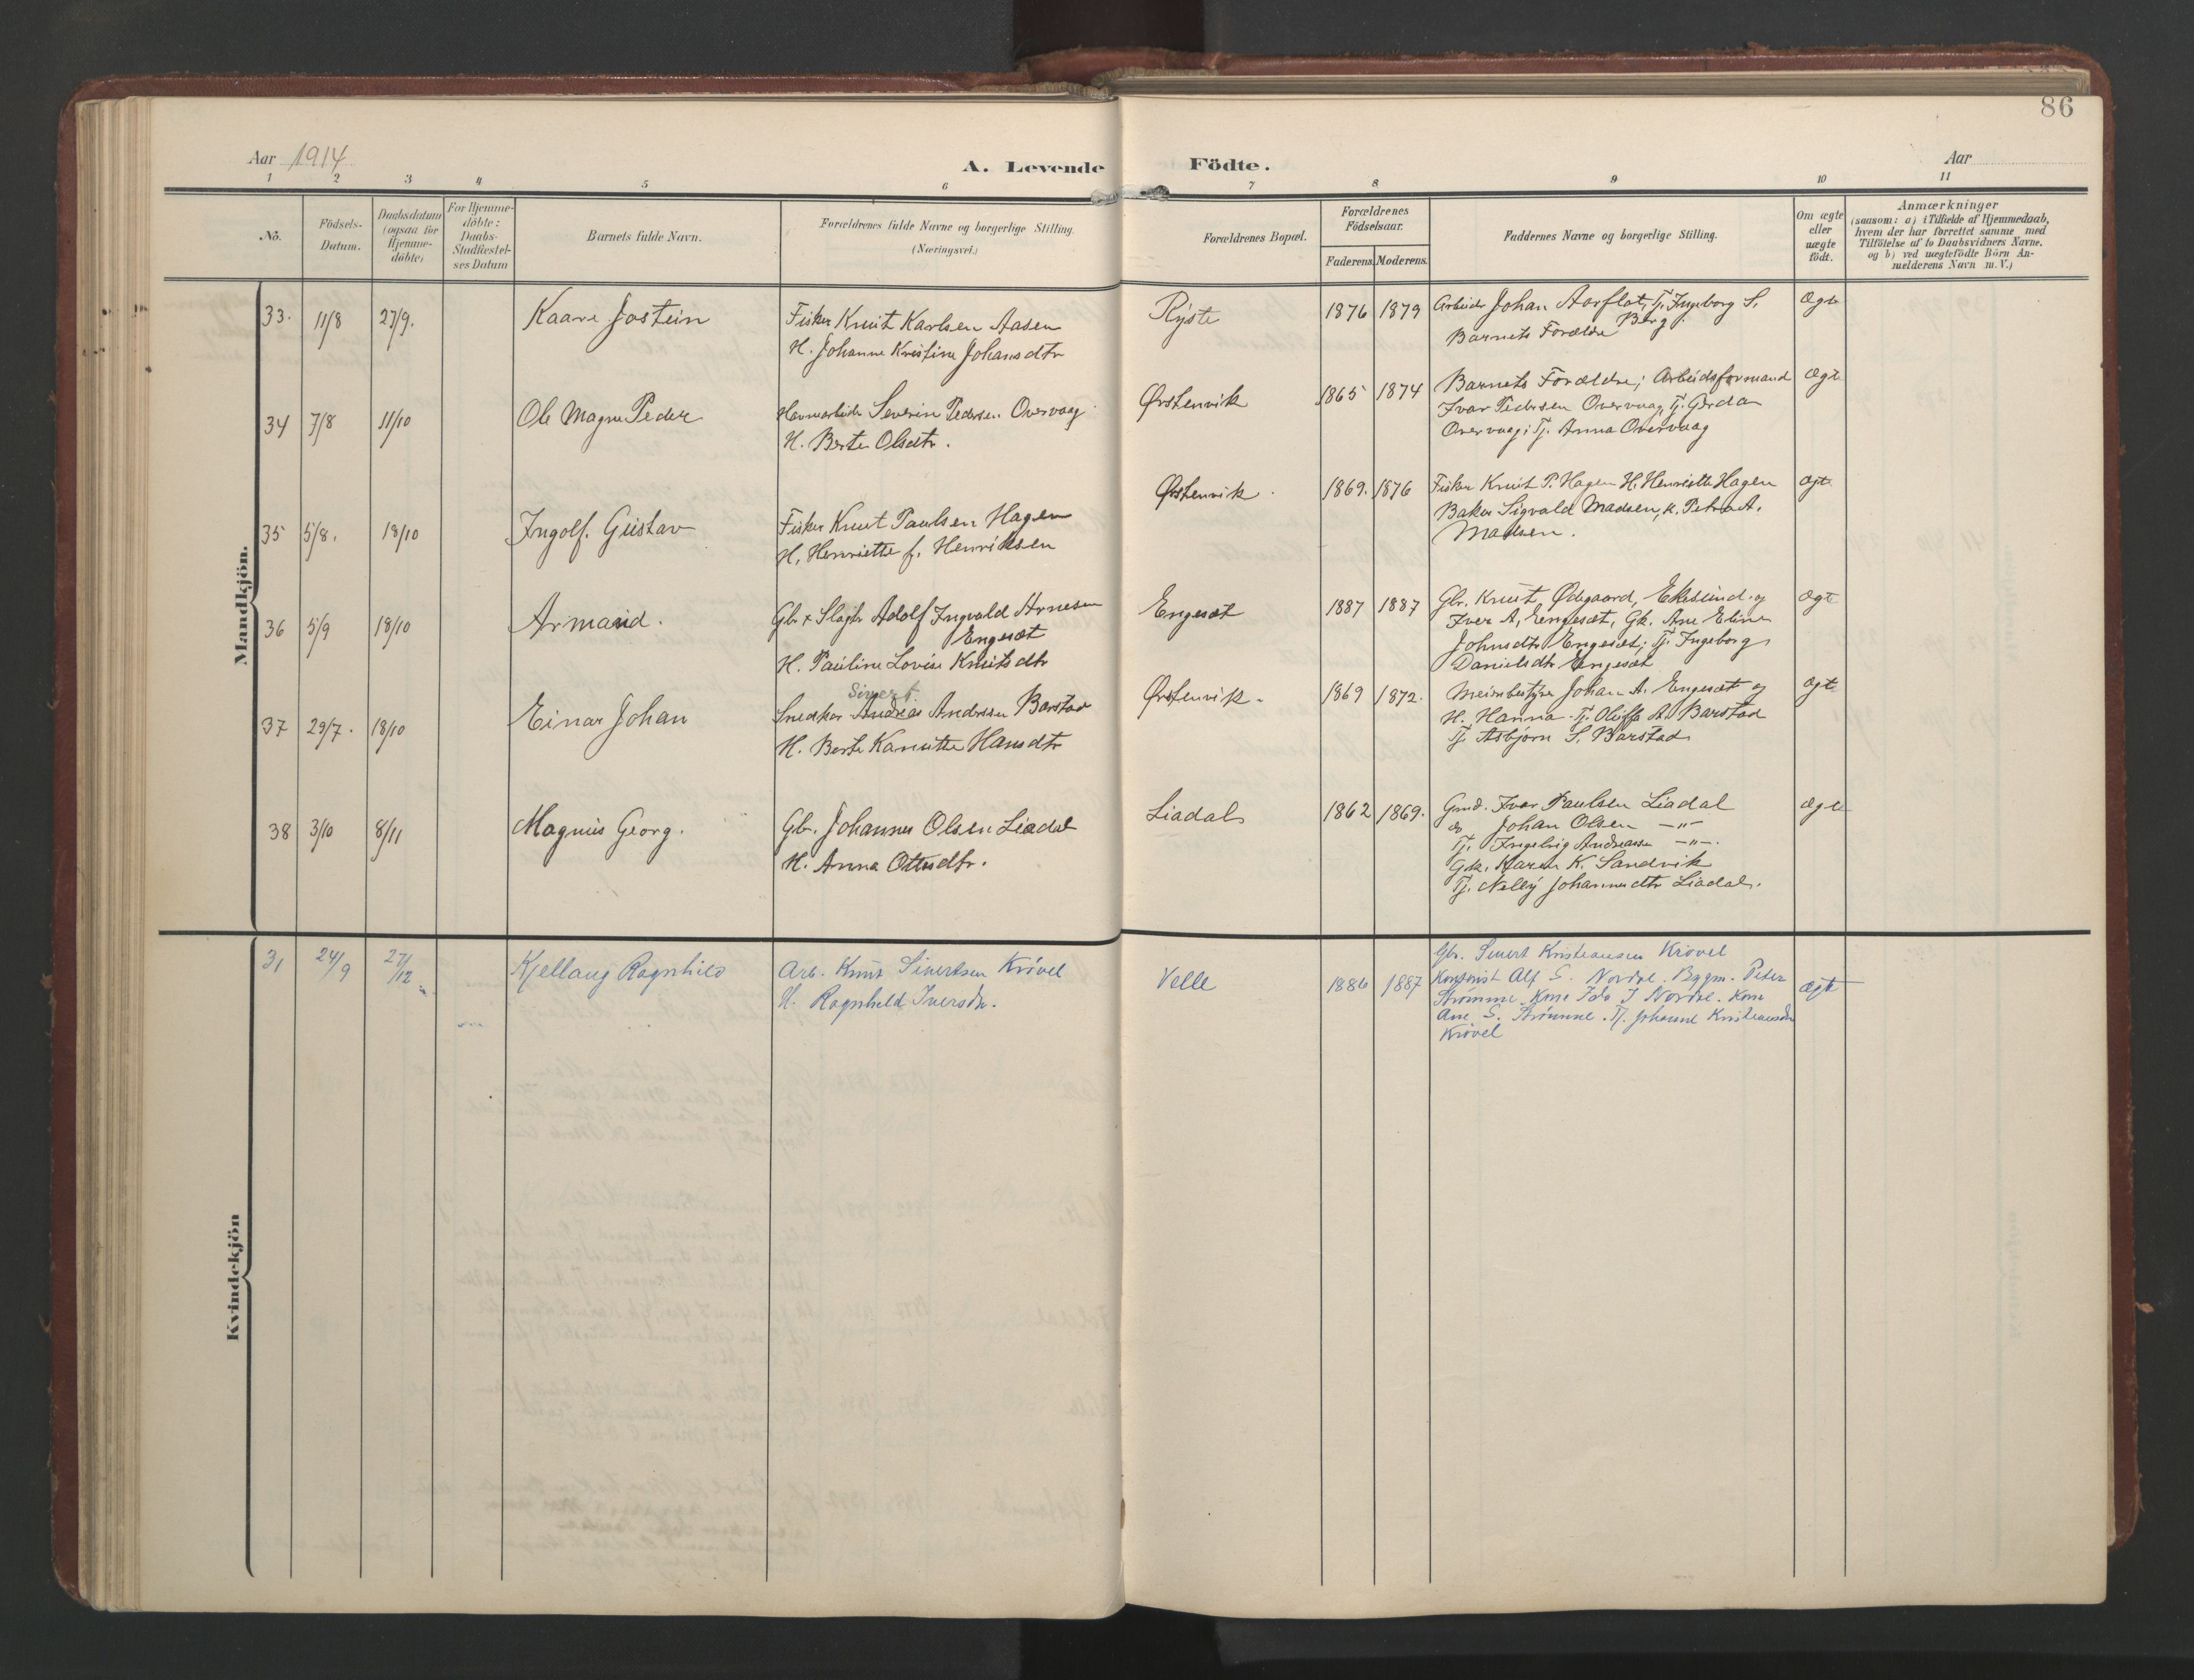 86
Aar 1914
A. Levende Födte.
Aar
1 2 3 4 5 6 7 8 9 10 11
No.
Födsels-
Datum.
Daabsdatum
(ogsaa for
Hjemme-
döbte)
For Hjemme-
döbte:
Daabs-
Stadfæstel-
ses Datum
Barnets fulde Navn.
Forældrenes fulde Navne og borgerlige Stilling.
(Næringsvei.)
Forældrenes Bopæl.
Forældrenes
Födselsaar.
Faderens. Moderens.
Faddernes Navne og borgerlige Stilling.
Om ægte
eller
uægte
födt.
Anmærkninger
(saasom: a) i Tilfælde af Hjemmedaab,
hvem der har forrettet samme med
Tilföielse af to Daabsvidners Navne,
og b) ved uægtefödte Börn An-
melderens Navn m. V.)
Mandkjön.
33. 11/8 27/9. Kaare Jostein
Fisker Knut Karlsen Aasen
H. Johanne Kristine Johansdtr
Ryste 1876 1879
Arbeider Johan Aarflot, Tj. Ingeborg S.
Berg.
Barnets Forældre
Ægte
34 7/8 11/10 Ole Magne Peder
Havnearbeider Severin Pedersen Overvaag
H. Berte Olsdtr.
Ørstenvik 1865 1874
Barnets Forældre; Arbeidsformand
Ivar Pedersen Overvaag, Tj. Gerda
Overvaag; Tj. Anna Overvaag
Ægte
35 5/8. 18/10 Ingolf Gustav
Fisker Knut Paulsen Hagen
H. Henriette f. Henriksen
Ørstenvik. 1869. 1876
Fisker Knut P. Hagen H. Henriette Hagen
Baker Sigvald Madsen, K. Petra A.
Madsen.
Ægte
36 5/9 18/10 Armand.
Gbr & Slagter Adolf Ingvald Arnesen
Engeset
H. Pauline Lovise Knutsdtr
Engeset 1887 1887
Gbr. Knut Ødegaard, Eksund og
Iver A. Engeset, Gk. Ane Eline
Johnsdtr Engeset; Tj. Ingeborg
Danielsdtr Engeset
Ægte
37 29/7. 18/10 Einar Johan
Sivert
Snedker Andreas Andersen Barstad
H. Berte Karnitte Hansdtr
Ørstenvik. 1869 1872.
Meieribestyrer Johan A. Engeset og
H. Hanna - Tj. Oluffa A. Barstad
Tj. Asbjørn S. Barstad
Ægte
38 3/10 8/11 Magnus Georg.
Gbr. Johannes Olsen Liadal
H. Anna Ottesdtr.
Liadal 1862 1869.
Gmd. Ivar Paulsen Liadal
do Johan Olsen —"—
Tj. Ingebrig Andreassen —"—.
Gbk. Karen K. Sandvik
Tj. Nelly Johannesdtr Liadal.
Ægte
Kvindekjön
31 24/9 27/12 Kjellaug Ragnhild
Arb. Knut Sivertsen Krøvel
H. Ragnhild Iversdtr.
Velle 1886 1887
Gbr. Sivert Kristiansen Krøvel
Kontorist Alf S. Nordre. Bygm. Peter
Strømme. Kone Ida J Nordre. Kone
Ane S. Strømme. Tj. Johanne Kristiansdtr
Krøvel
Ægte